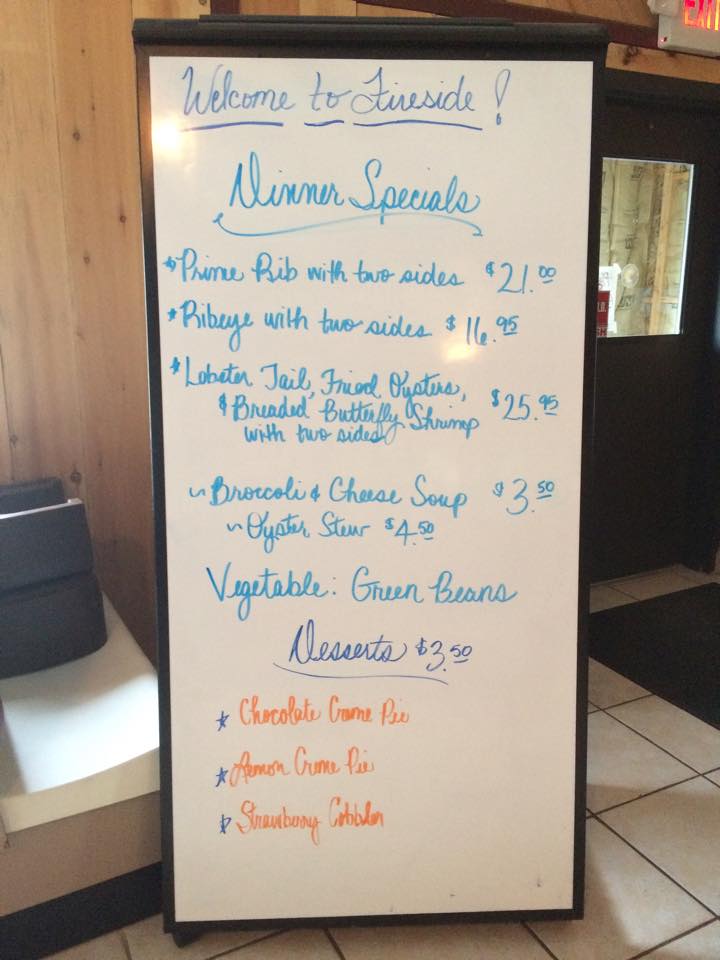 EXIT
Welcome to Fireside!
Dinner Specials
* Prime Rib with two sides $21.00
* Ribeye with two sides $16.95
* Lobster Tail, Fried Oysters,
& Breaded Butterfly Shrimp $25.95
with two sides
~ Broccoli & Cheese Soup $3.50
~ Oyster Stew $4.50
Vegetable: Green Beans
Desserts $3.50
* Chocolate Creme Pie
* Lemon Creme Pie
* Strawberry Cobbler